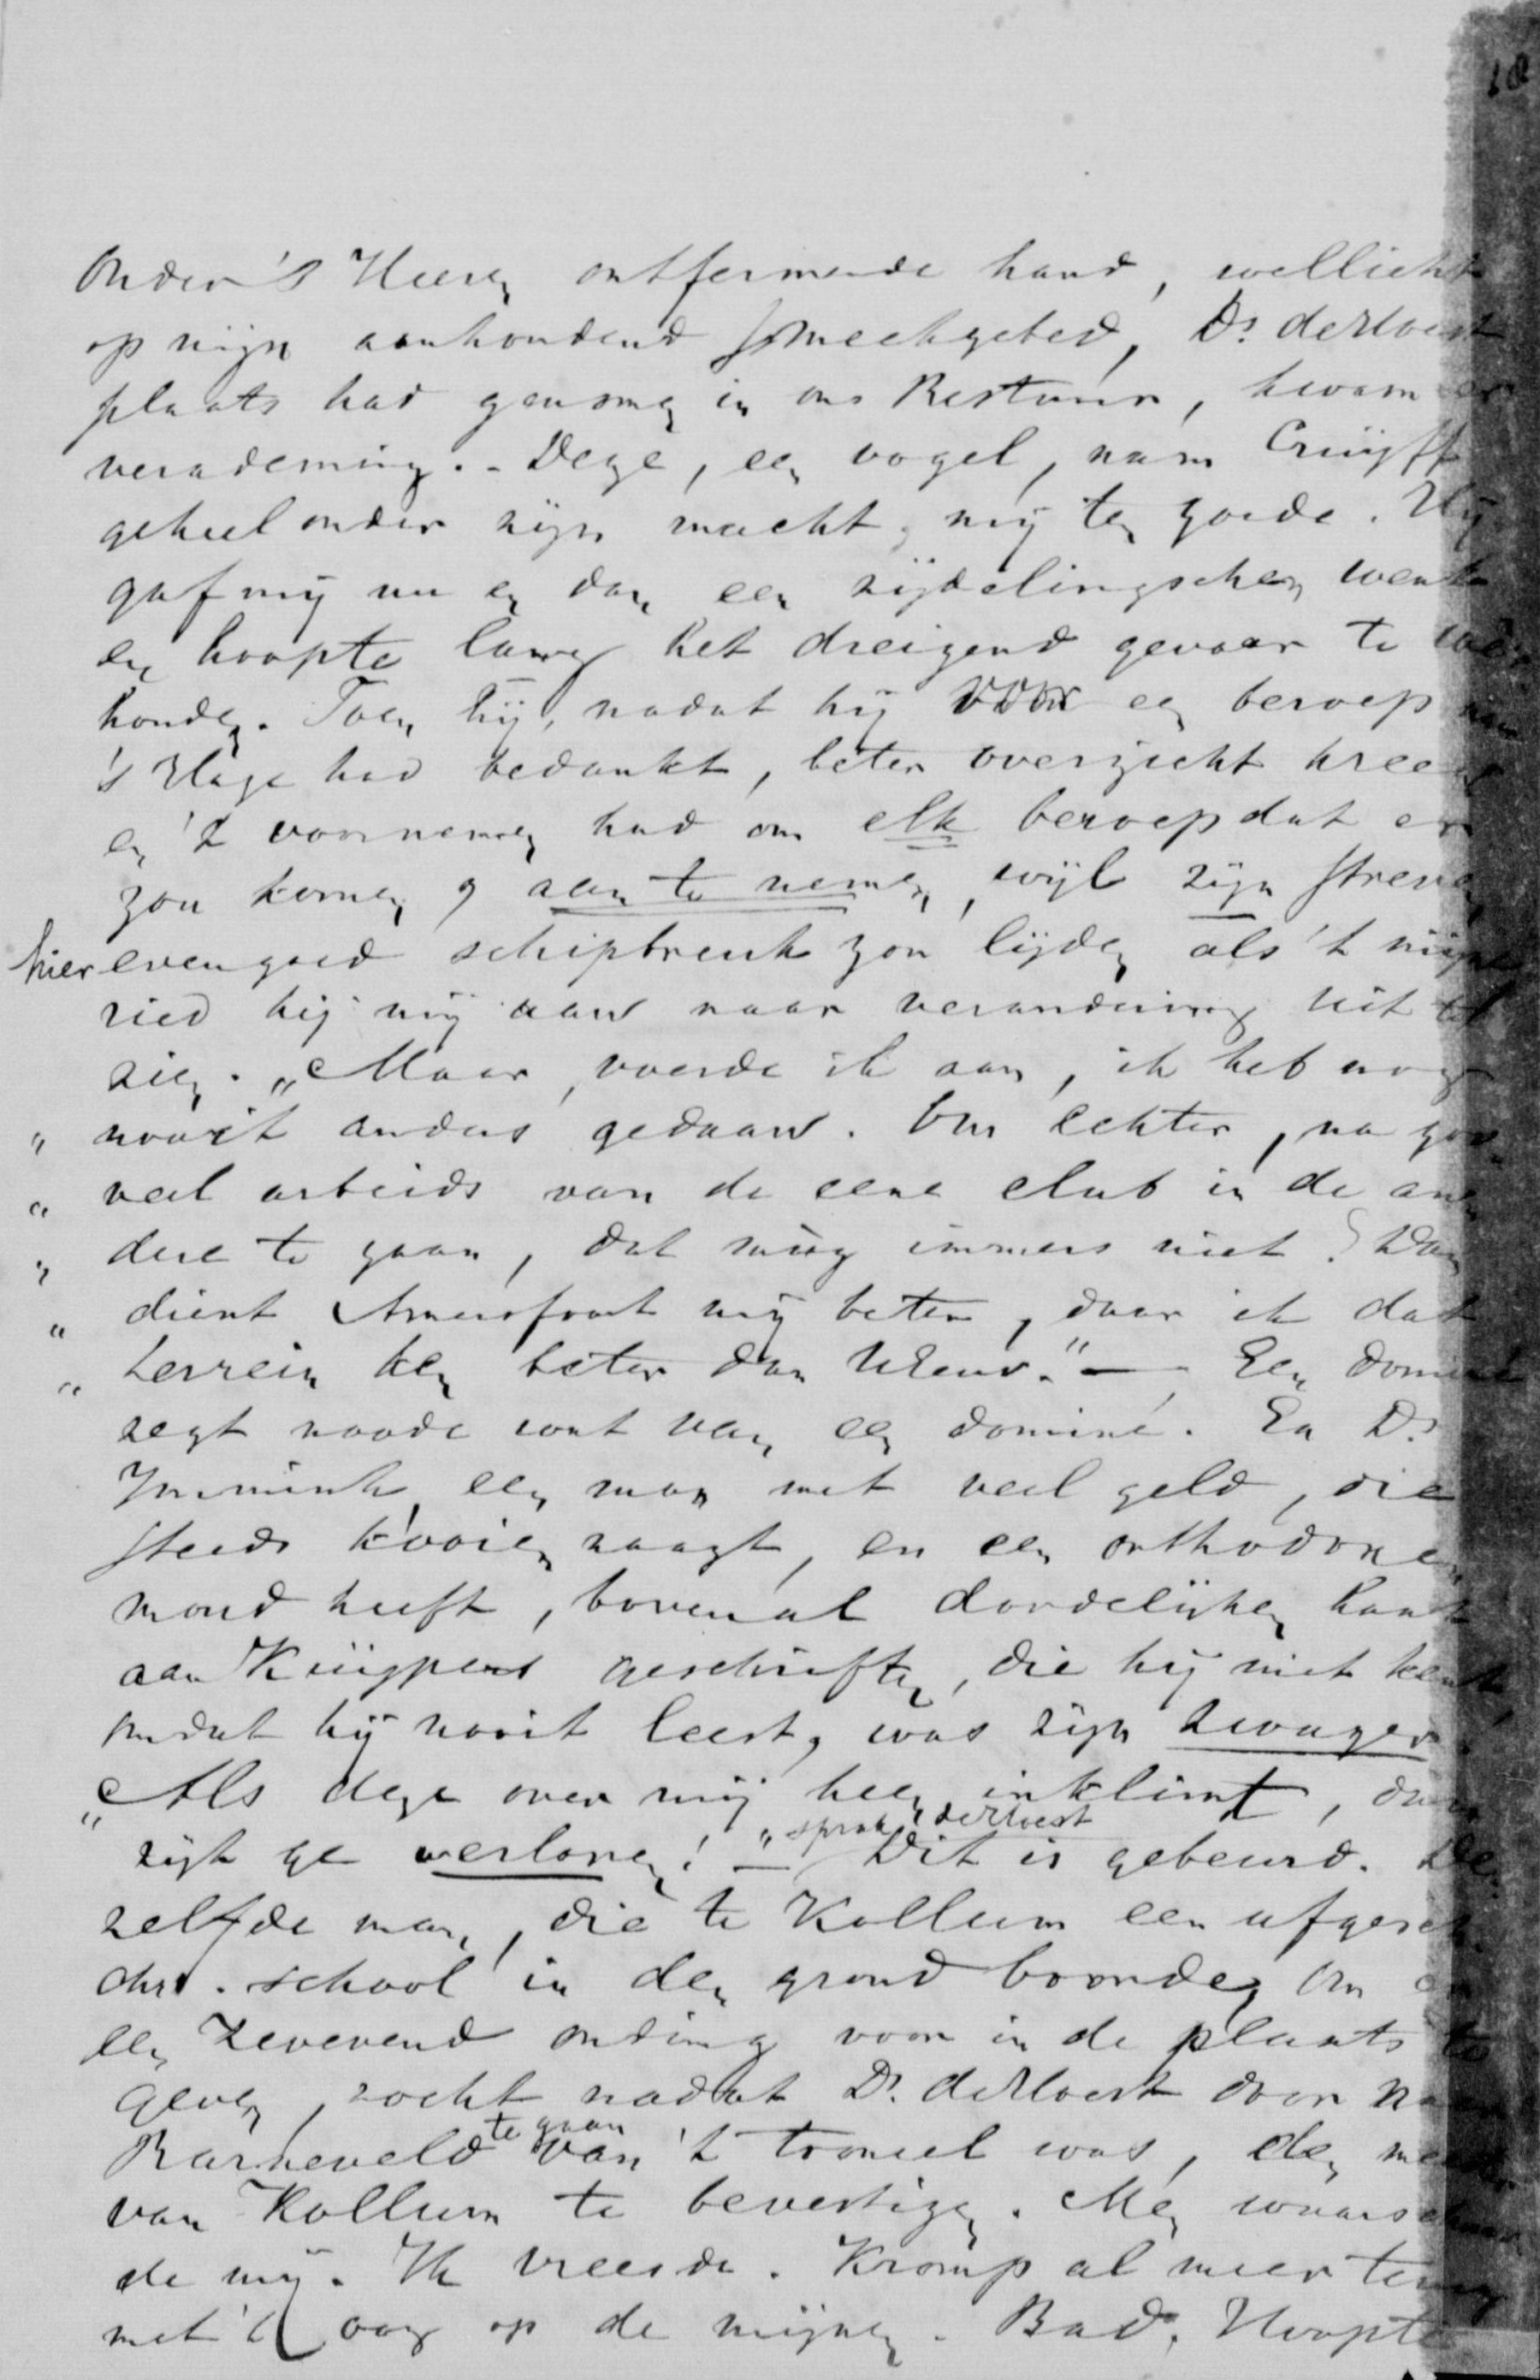 Onder 's Heeren ontfermende hand, wellicht
op mijn aanhoudend smeekgebed, Ds. derLoest
plaats had genomen in ons Bestuur, kwam er
verademing. - Deze, een vogel, nam Cruijff
geheel onder zijn macht, mij ten goede. Hij
gaf mij nu en dan een zijdelingschen wenk
en hoopte lang het dreigend gevaar te
houden. Toen hij, nadat hij voor een beroep naar
's Hage had bedankt, beter overzicht kreeg
en 't voornemen had om elk beroep dat er
zou komen, aan te nemen, wijl zijn streven
hier evengoed schipbreuk zou lijden als 't mijne
ried hij mij aan naar verandering uit te
zien. „Maar, voerde ik aan, ik heb nog
„ nooit anders gedaan. Om echter, na zoo
„ veel arbeids van de eene club in de an
„ dere te gaan, dat mag immers niet? Dan
„ dient Amersfoort mij beter, daar ik dat
„ terrein ken beter dan elders." — Een dominé
zegt noode wat van een dominé. En Ds.
Immink, een man met veel geld, die
steeds kooien zaagt, en een orthodoxen
mond heeft, bovenal doodelijken haat
aan Kuijpers geschriften, die hij niet kent,
omdat hij nooit leest, was zijn zwager.
„Als deze over mij heen inklimt, dan
zijt ge verloren! " sprak derLoest — Dit is gebeurd. De
zelfde man, die te Kollum een afgesch.
chr. school in den grond boorde, om er
een zwevend onding voor in de plaats te
geven, zocht nadat Ds. derLoest door naar
Barneveld te gaan van 't tooneel was, den
van Kollum te bevestigen. Men waarschuw
de mij. Ik vreesde. Kromp al meer terug
met 't oog op de mijnen. Bad. Hoopte